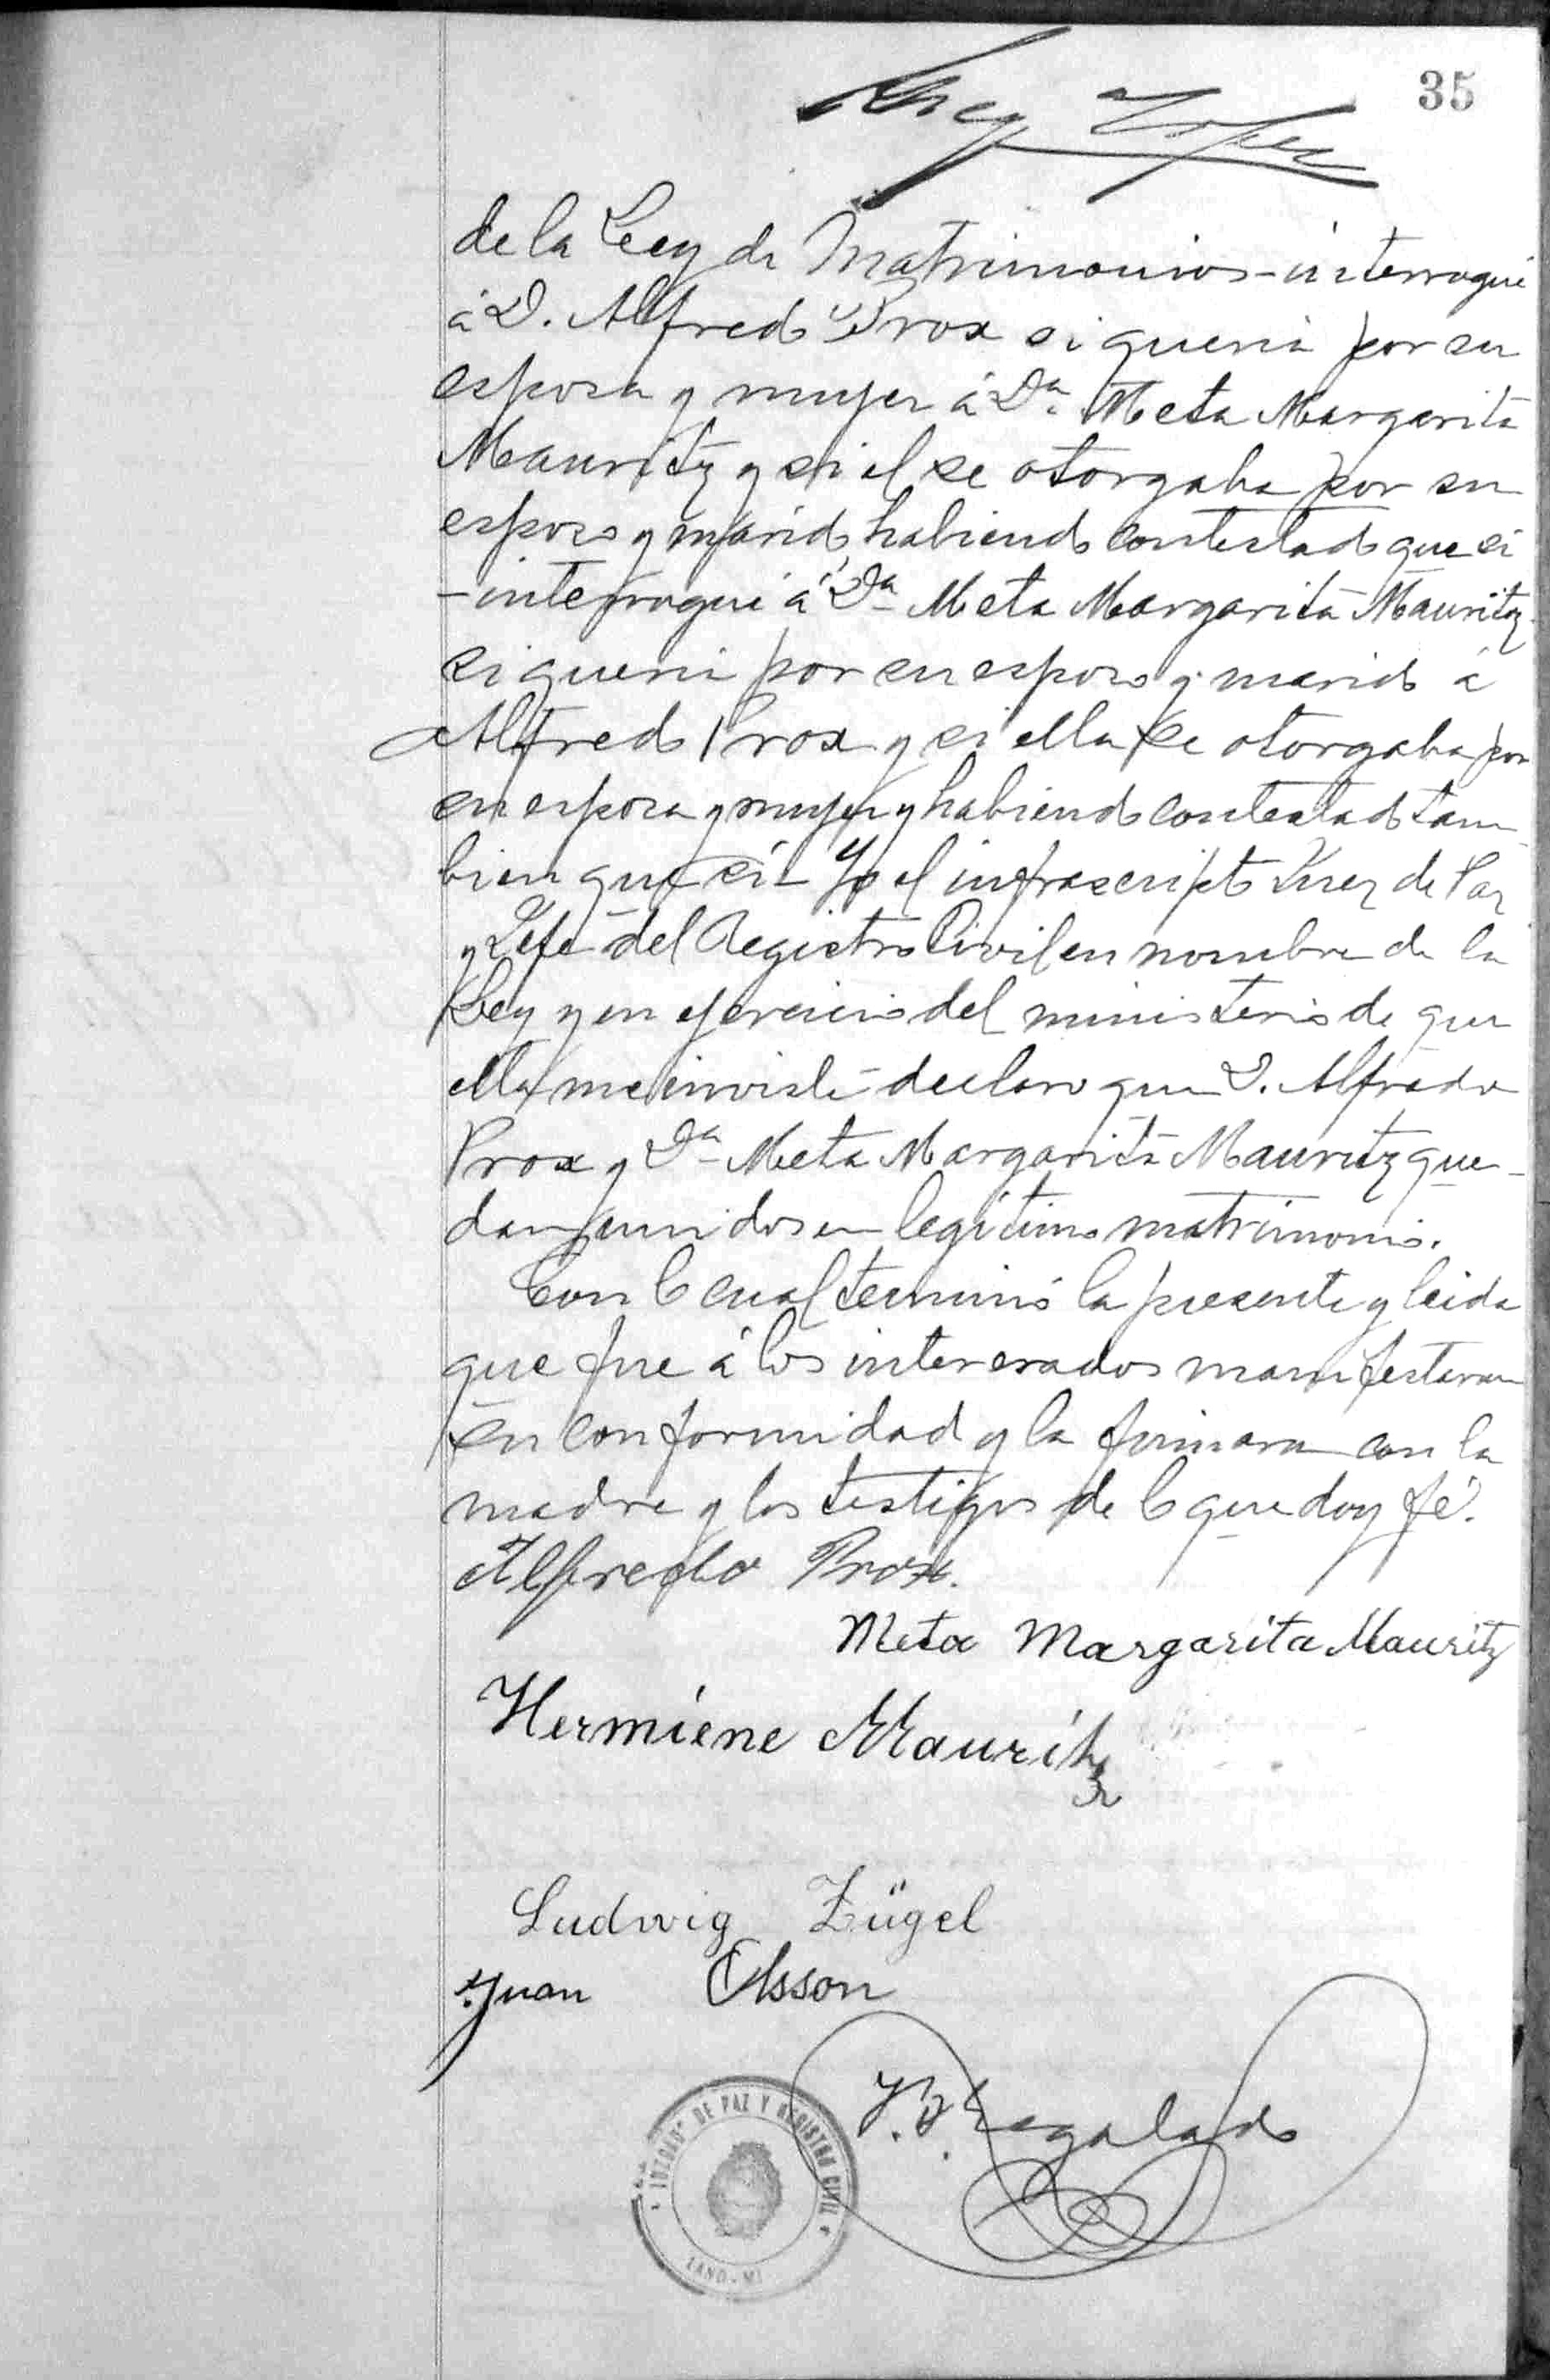 35
de la Ley de Matrimonios - interrogué
á D. Alfredo Prox si queria por su
esposa y mujer á Da. Meta Margarita
Mauritz y si el se otorgaba por su
esposo y marido, habiendo contestado que si
- interrogué á Da Meta Margarita Mauritz
si queria por su esposo y marido á
Alfredo Prox y si ella se otorgaba por
su esposa y mujer y habiendo contestado tam
bien que sí - Yo el infrascripto Juez de Paz
y Jefe del Registro Civil en nombre de la
Ley y en ejercicio del ministerio de que
ella me inviste declaro que D. Alfredo
Prox y Da Meta Margarita Mauritz que-
dan unidos en legítimo matrimonio.
Con lo cual terminó la presente y leida
que fue á los interesados manifestaron
su conformidad y la firmaron con la
madre y los testigos de lo que doy fé.
Alfredo Prox.
Meta Margarita Mauritz
Hermiene Mauritz
Ludwig Zügel
Juan Olsson
Regalado
JUZGADO DE PAZ Y REGISTRO CIVIL